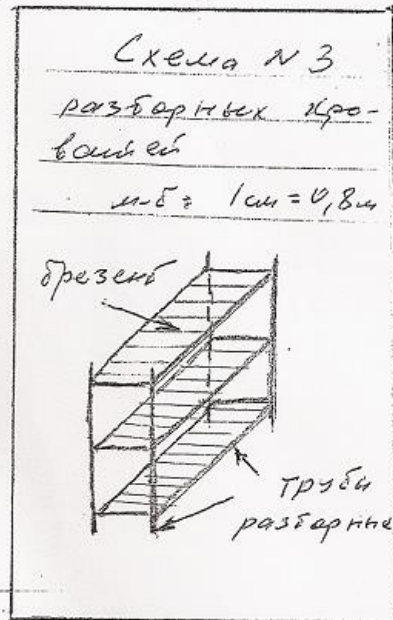 Схема N 3
разборных кро-
ватей
м-б = 1 см = 0,8 м
брезент
трубы
разборные